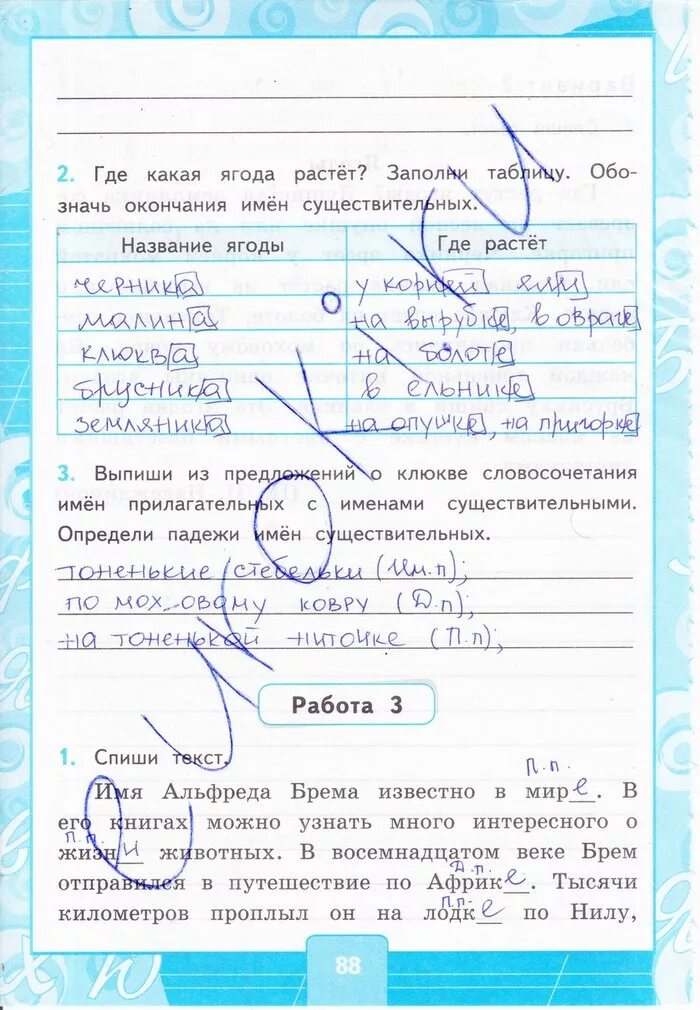 2. Где какая ягода растёт? Заполни таблицу. Обо-
значь окончания имён существительных.
Название ягоды Где растёт
черника у корней ели
малина на вырубке, в овраге
клюква на болоте
брусника в ельнике
земляника на опушке, на пригорке
3. Выпиши из предложений о клюкве словосочетания
имён прилагательных с именами существительными.
Определи падежи имён существительных.
тоненькие стебельки (Им.п);
по моховому ковру (Д.п);
на тоненькой ниточке (П.п);
Работа 3
1. Спиши текст.
П.п.
Имя Альфреда Брема известно в мире. В
его книгах можно узнать много интересного о
П.п.
жизни животных. В восемнадцатом веке Брем
Д.п.
отправился в путешествие по Африке. Тысячи
П.п.
километров проплыл он на лодке по Нилу,
88